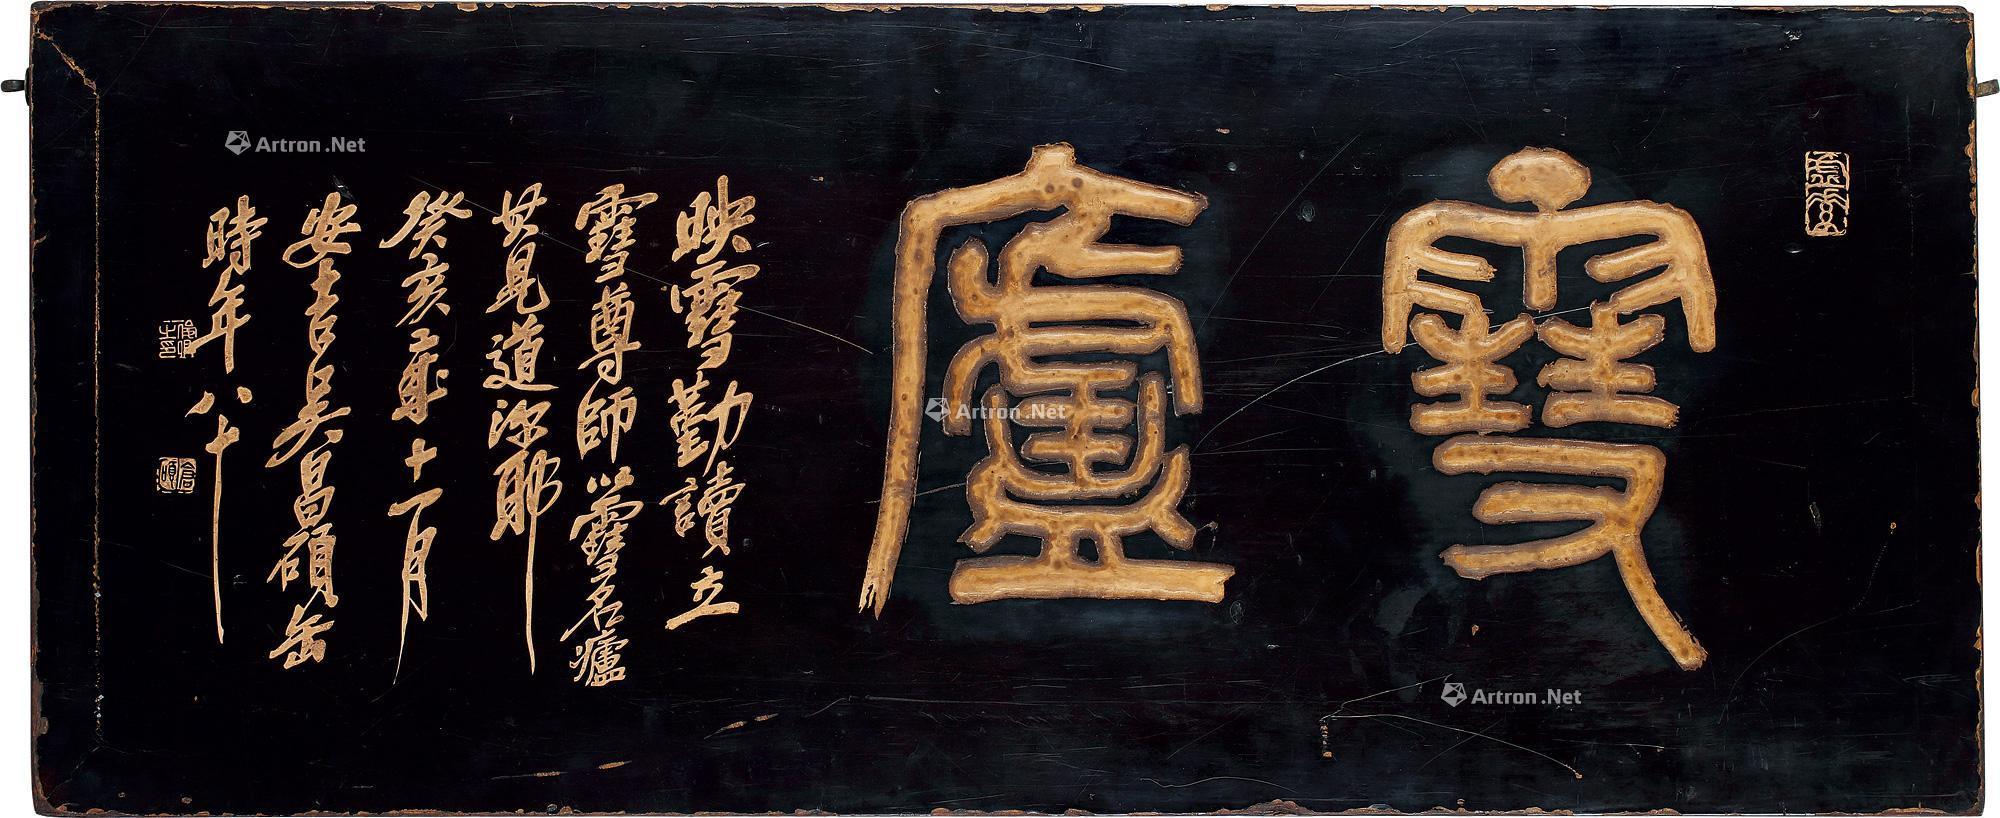 雪廬
映雪勤讀立
雪尊師以雪名廬
其見道深耶
癸亥年十一月
安吉吳昌碩缶
時年八十
Artron.Net
Artron.Net
Artron.Net